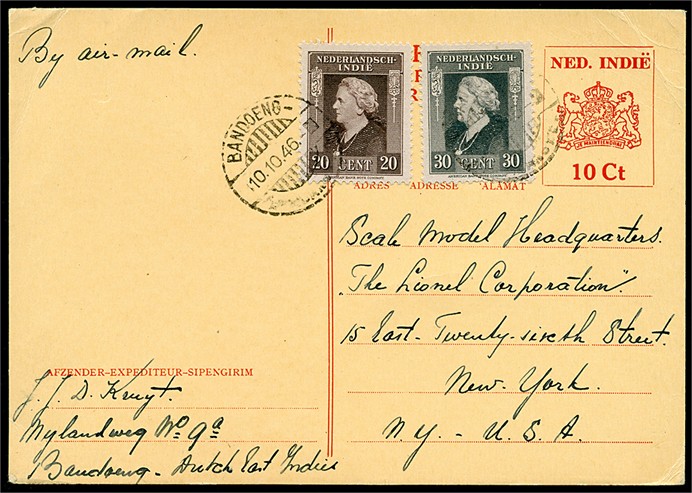 By air-mail.
NEDERLANDSCH-
INDIË
20 CENT 20
NEDERLANDSCH-
INDIË
30 CENT 30
NED. INDIË
JE MAINTIENDRAI
10 Ct
BANDOENG
10.10.46
ADRES ADRESSE ALAMAT
Scale Model Headquarters.
"The Lionel Corporation"
15 East-Twenty-sixth Street.
New-York.
N.Y. - U.S.A.
AFZENDER-EXPEDITEUR-SIPENGIRIM
J. J. D. Kruyt.
Nylandweg No 9a
Bandoeng - Dutch East Indies